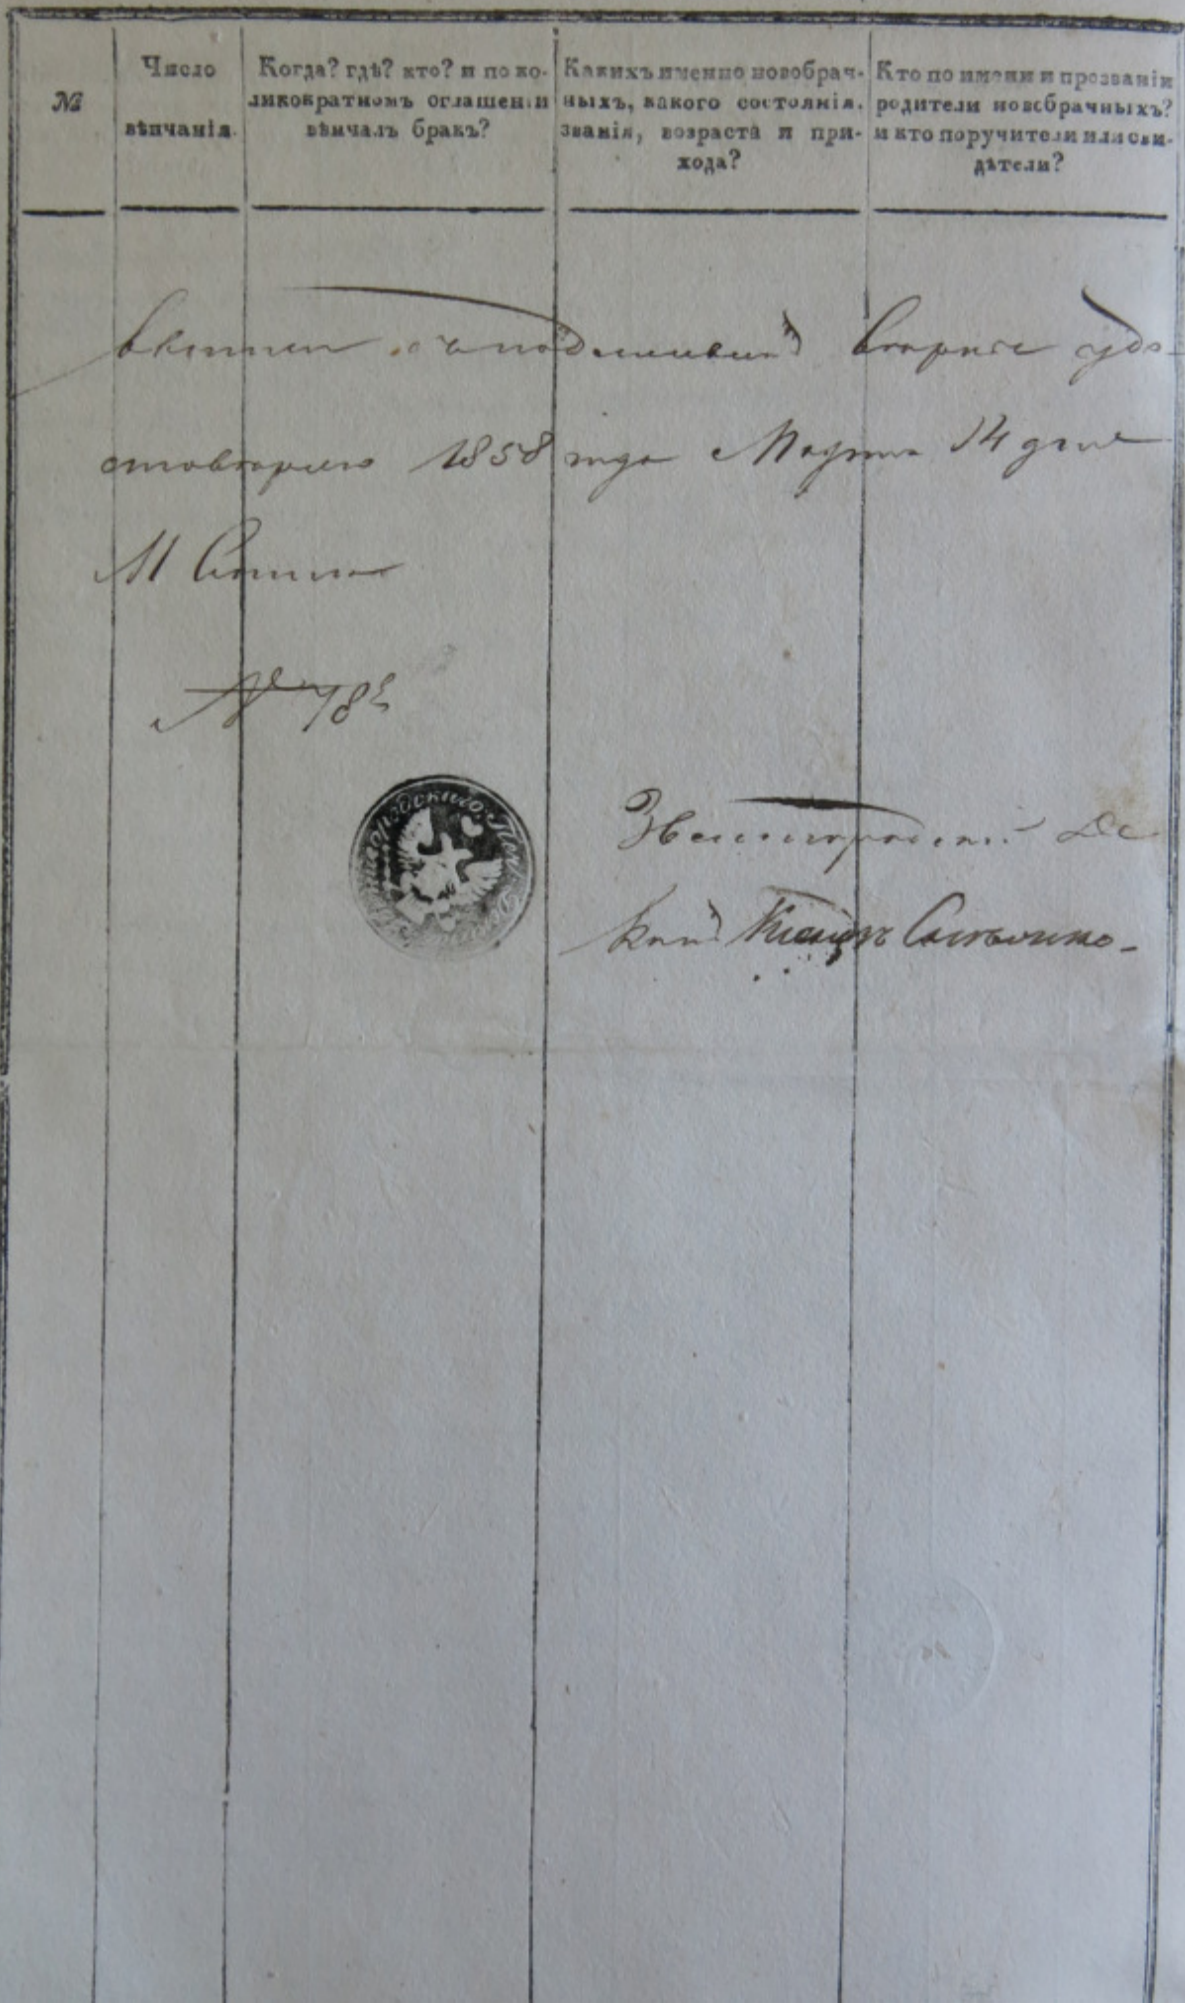 №
Число
вѣнчанія.
Когда? гдѣ? кто? и по ко-
ликократномъ оглашеніи
вѣнчалъ бракъ?
Какихъ именно новобрач-
ныхъ, какого состоянія,
званія, возраста и при-
хода?
Кто по имени и прозванію
родители новобрачныхъ?
и кто поручители или сви-
дѣтели?
съ подлинным верные удо-
стоверяю 1858 года Марта 14 дня
М
№ 78
Звенигородский Де
кан Ксендз